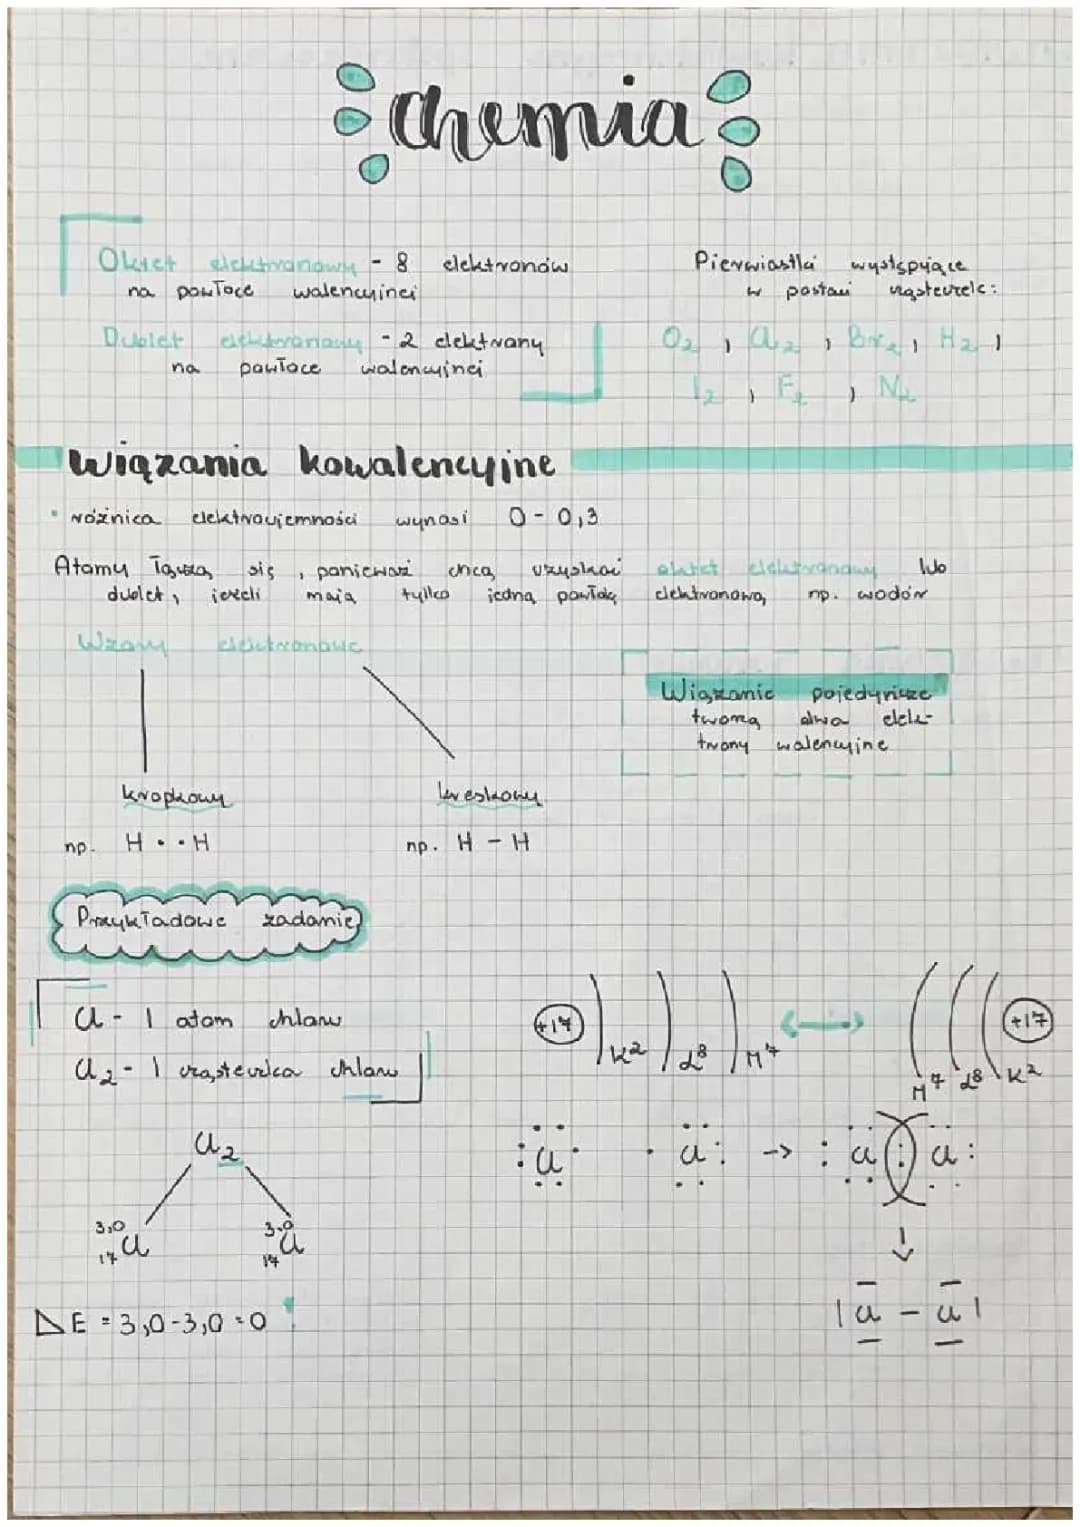 chemia
Oktet elektronowy - 8 elektronów
na powłoce walencyjnej
Dublet elektronowy - 2 elektrony
na powłoce walencyjnej
Pierwiastki występujące
w postaci cząsteczek:
O₂, Cl₂, Br₂, H₂,
I₂, F₂, N₂
Wiązania kowalencyjne
• różnica elektroujemności wynosi 0-0,3
Atomy łączą się, ponieważ chcą uzyskać oktet elektronowy lub
dublet, jeżeli mają tylko jedną powłokę elektronową, np. wodór
Wzory elektronowe
Wiązanie pojedyncze
tworzą dwa elek-
trony walencyjne
kropkowy
kreskowy
np. H • • H
np. H - H
Przykładowe zadanie
Cl - 1 atom chloru
Cl₂ - 1 cząsteczka chloru
+17 K² L⁸ M⁷
M⁷ L⁸ K² +17
Cl₂
Cl Cl -> Cl : Cl
3,0 17 Cl
3,0 17 Cl
ΔE = 3,0-3,0=0 !
|Cl - Cl|